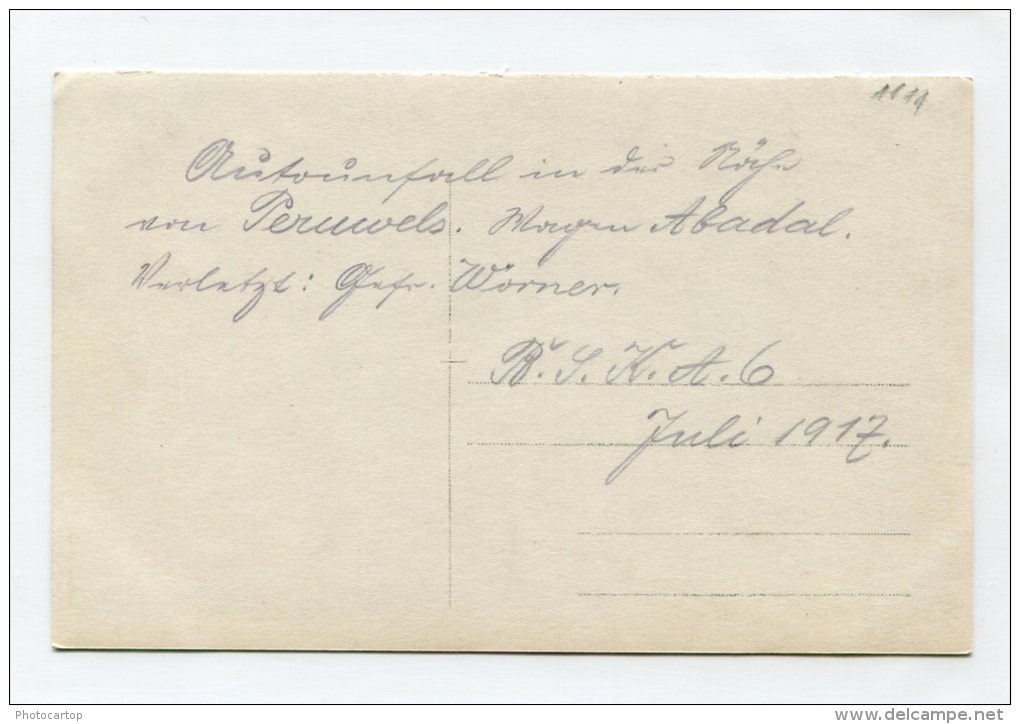 1119
Autounfall in der Nähe
von Peruwels. Wagen Abadal.
Verletzt: Gefr. Wörner.
R.S.K.A.6
Juli 1917.
Photocartop
www.delcampe.net